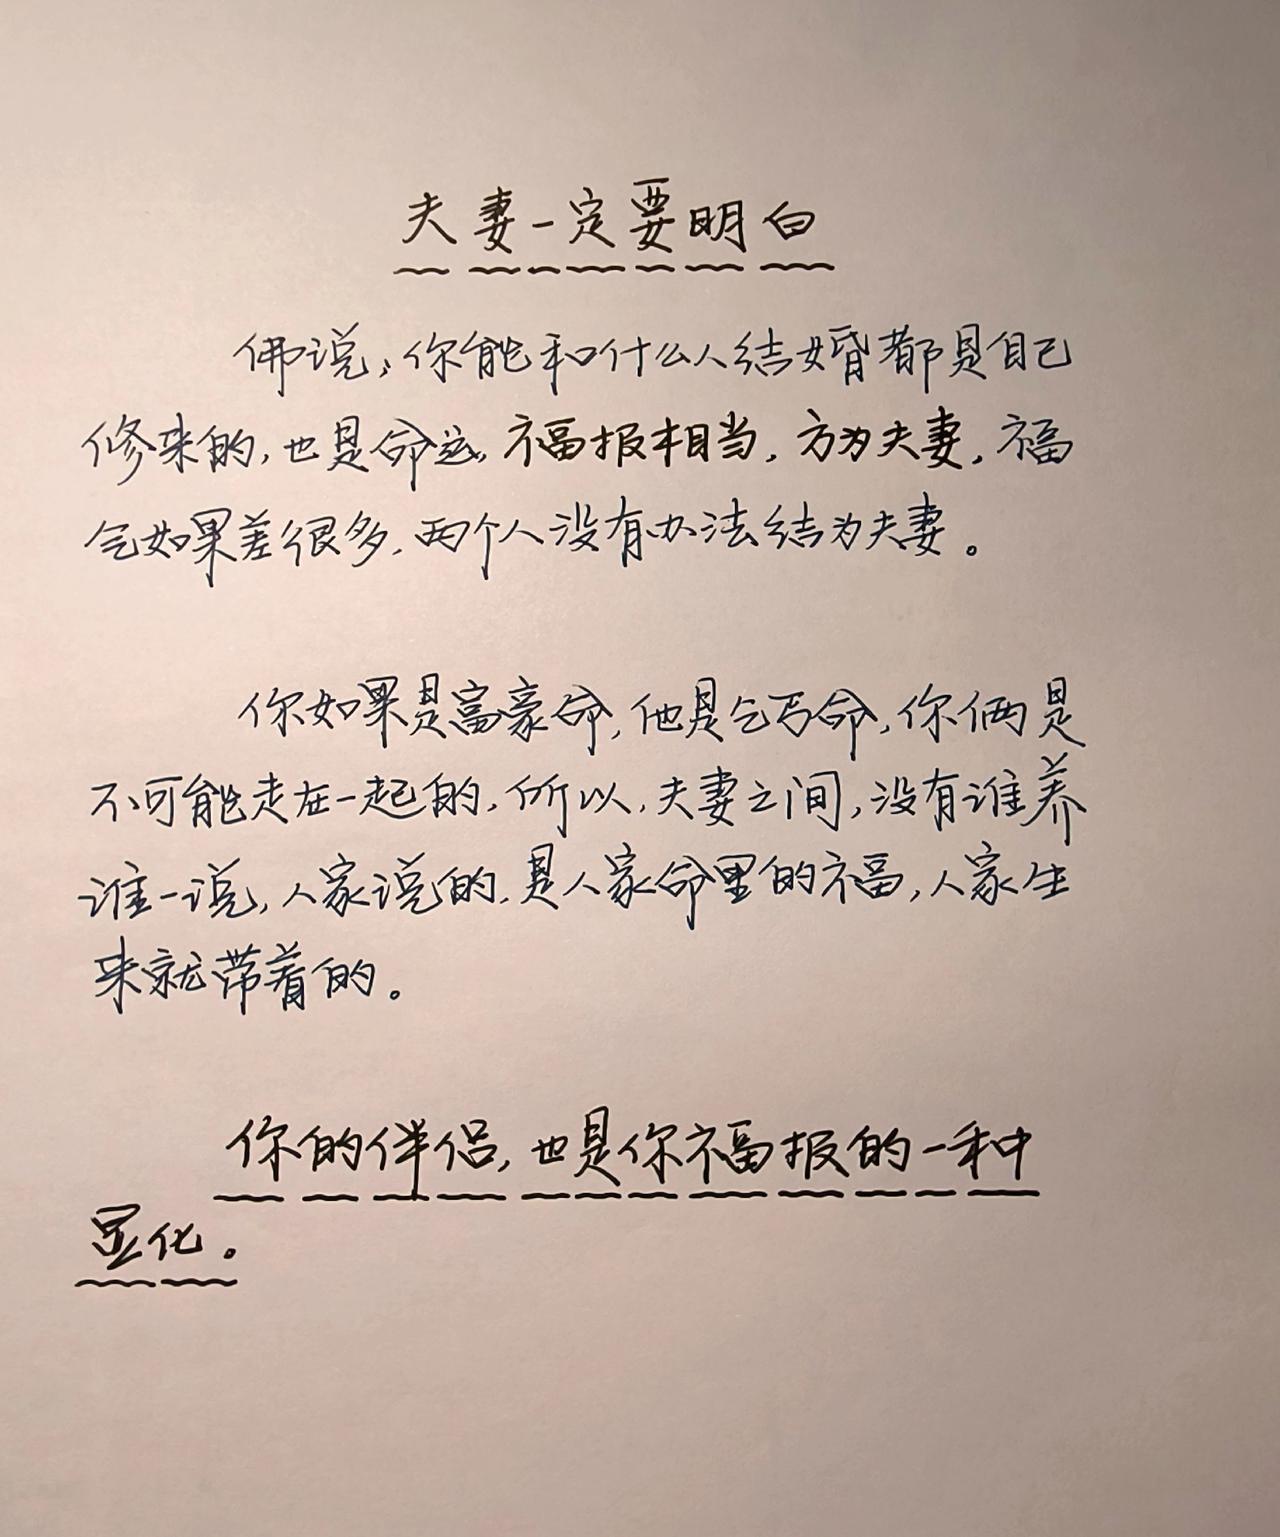 夫妻一定要明白
佛说，你能和什么人结婚都是自己
修来的，也是命运，福报相当，方为夫妻，福
气如果差很多，两个人没有办法结为夫妻。
你如果是富豪命，他是乞丐命，你俩是
不可能走在一起的，所以，夫妻之间，没有谁养
谁一说，人家说的，是人家命里的福，人家生
来就带着的。
你的伴侣，也是你福报的一种
显化。